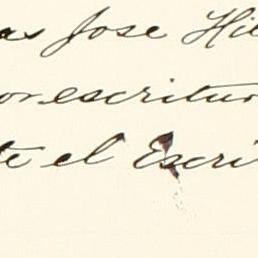 as Jose Hi
or escritur
te el Escri